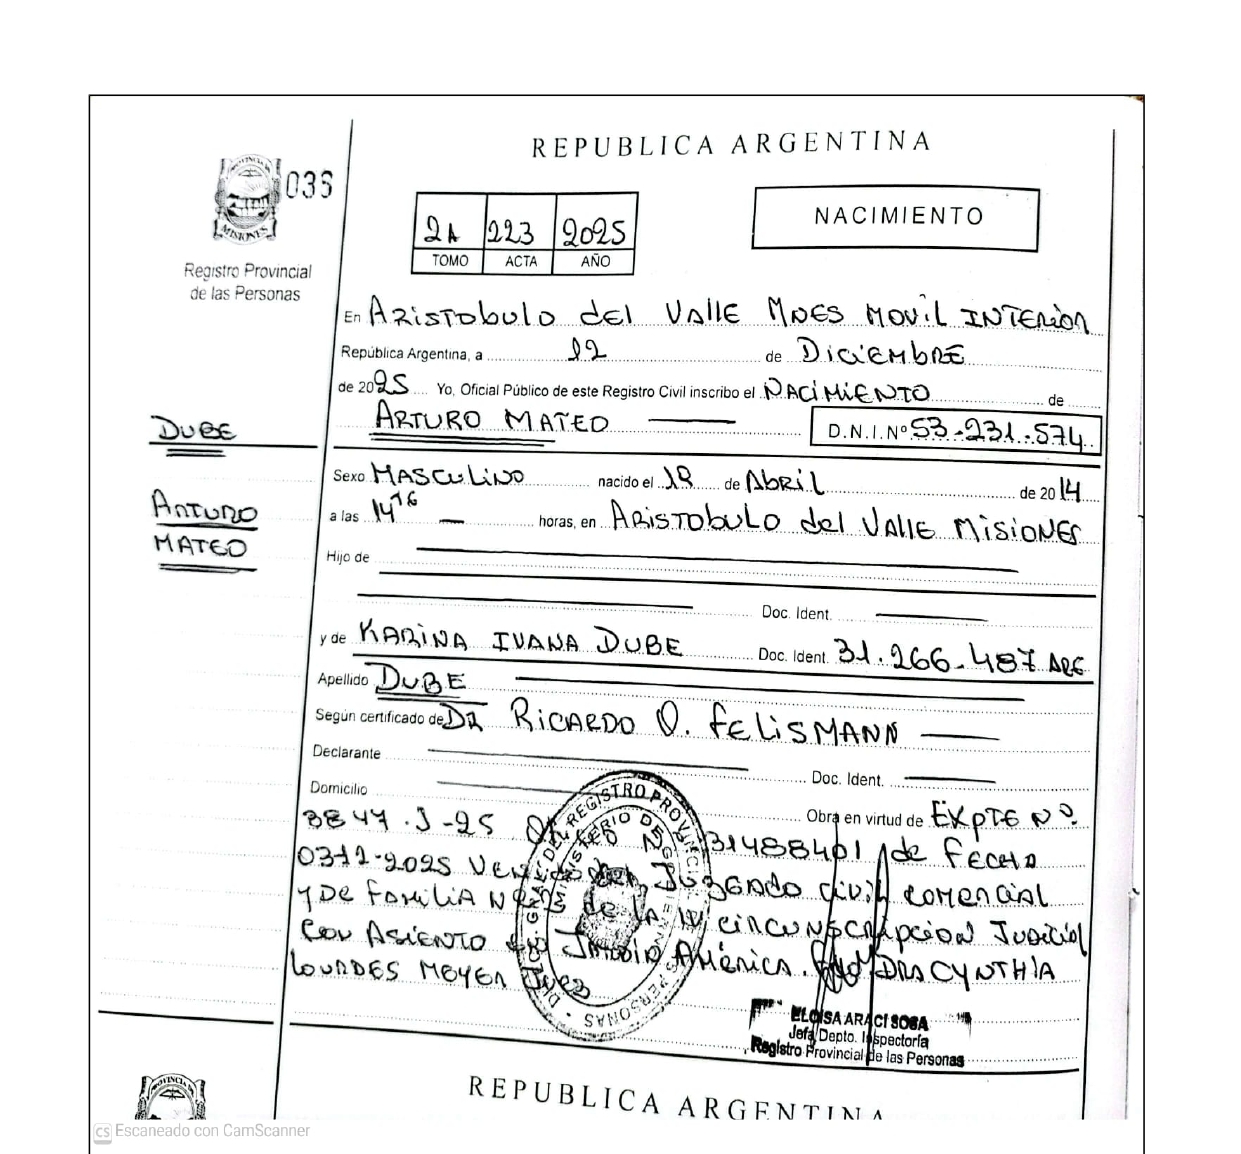 REPUBLICA ARGENTINA
PROVINCIA DE
MISIONES
036
Registro Provincial
de las Personas
2A 223 2025
TOMO ACTA AÑO
NACIMIENTO
En Aristobulo del Valle Mnes Movil Interior
República Argentina, a 12 de Diciembre
de 2025 Yo, Oficial Público de este Registro Civil inscribo el Nacimiento de
Arturo Mateo D.N.I.Nº 53-231-574
Dube
Arturo
Mateo
Sexo Masculino nacido el 18 de Abril de 2014
a las 14 16 horas, en Aristobulo del Valle Misiones
Hijo de
Doc. Ident.
y de Karina Ivana Dube Doc. Ident. 31.266.487 ARG
Apellido Dube
Según certificado de Dr Ricardo O. Felismann
Declarante Doc. Ident.
Domicilio Obra en virtud de Expte Nº.
3847-J-25 31488401 de Fecha
0312-2025 del Juzgado Civil Comercial
y De Familia de la IV circunscripcion Judicial
con Asiento en Jardin América. Dra Cynthia
Lourdes Meyer Juez
DIREC. GRAL. DEL REGISTRO PROVINCIAL DE LAS PERSONAS
MINISTERIO DE
ELOISA ARACI SOSA
Jefa Depto. Inspectoría
Registro Provincial de las Personas
PROVINCIA
REPUBLICA ARGENTINA
CS Escaneado con CamScanner